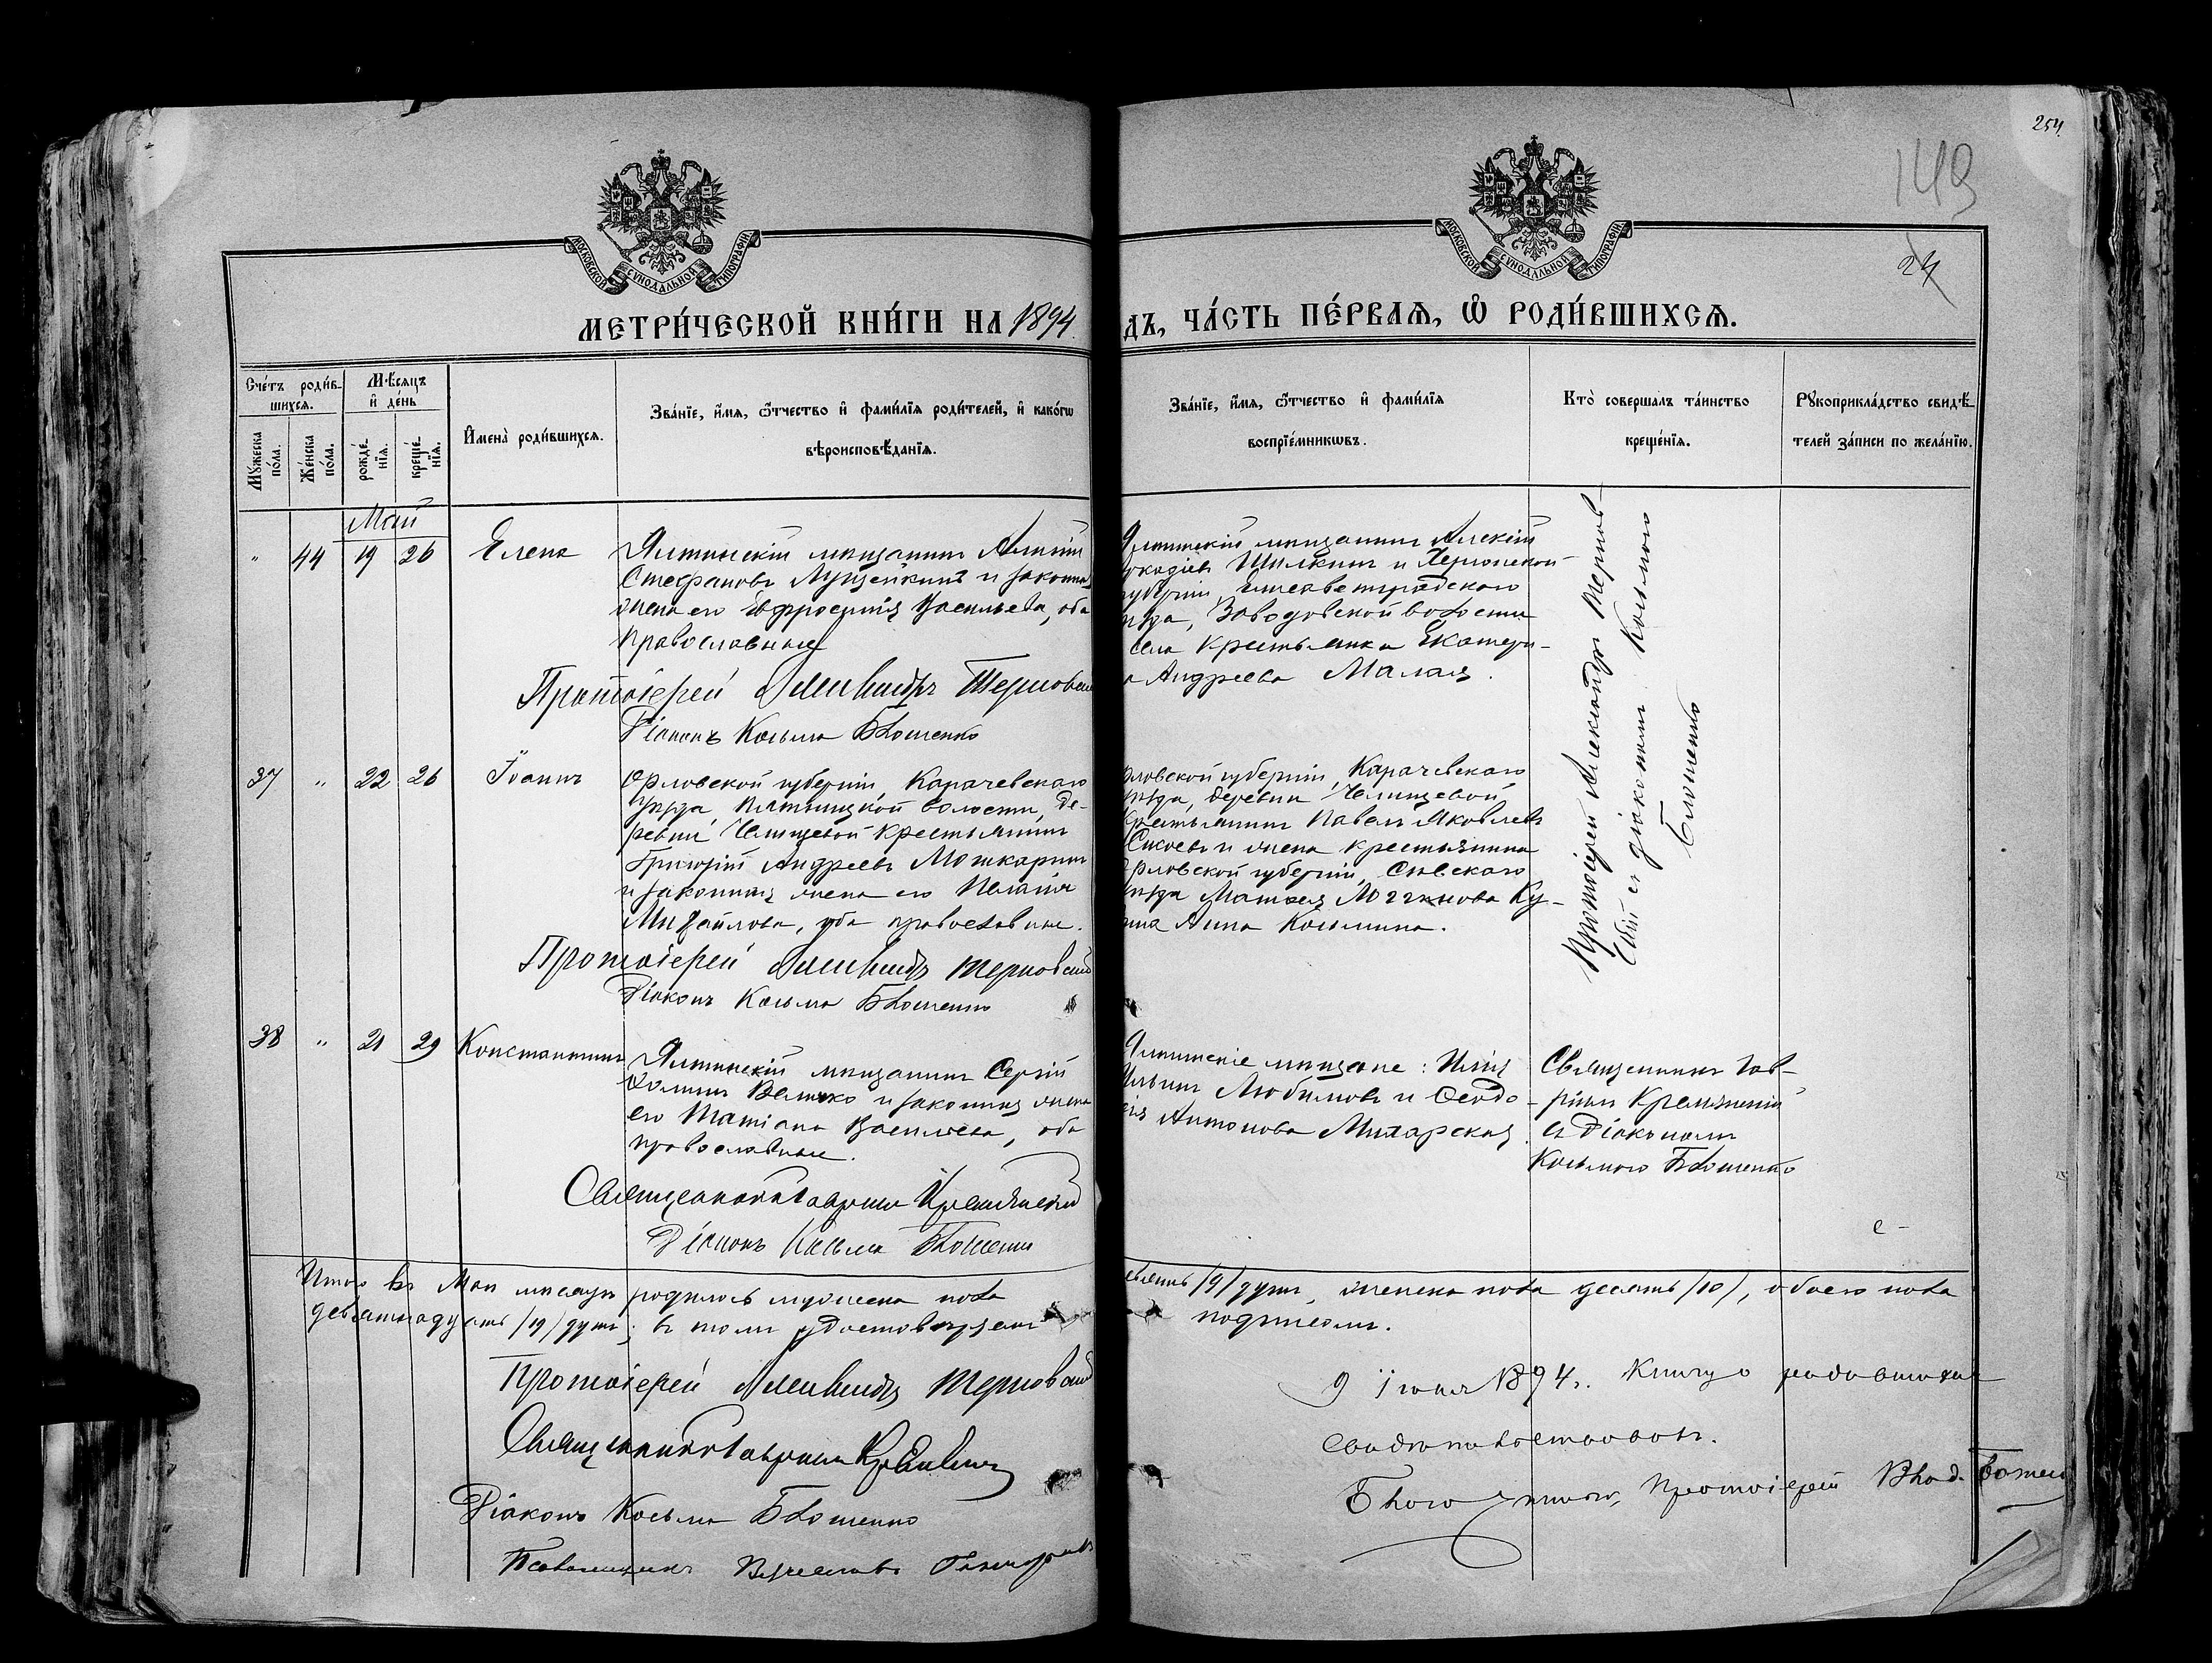 254.
149
24
МОСКОВСКОЙ СѴНОДАЛЬНОЙ ТИПОГРАФІИ
МОСКОВСКОЙ СѴНОДАЛЬНОЙ ТИПОГРАФІИ
МЕТРИ́ЧЕСКОЙ КНИ́ГИ НА 1894
ДЪ, ЧА́СТЬ ПЕ́РВАѦ, Ѡ҆ РОДИ́ВШИХСѦ.
Сче́тъ роди́в-
шихсѧ.
Мꙋ́жеска по́ла.
Же́нска по́ла.
Мѣ́сѧцъ и҆ де́нь
рожде́-
нїѧ.
креще́-
нїѧ.
И҆мена̀ роди́вшихсѧ.
Зва́нїе, и҆́мѧ, ѻ҆́тчество и҆ фами́лїѧ роди́телей, и҆ како́гѡ
вѣроисповѣ́данїѧ.
Зва́нїе, и҆́мѧ, ѻ҆́тчество и҆ фами́лїѧ
воспрїе́мникѡвъ.
Кто̀ соверша́лъ та́инство
креще́нїѧ.
Рꙋкоприкла́дство свидѣ́-
телей за́писи по жела́нїю.
Май
" 44 19 26 Елена
Ялтинскій мѣщанинъ Алексій
Стефановъ и законная
жена его Евфросинія Васильева, оба
православные
Протоіерей Александръ Терновскій
Діаконъ Косьма Блошенко
Ялтинскій мѣщанинъ Алексій
и Херсонской
губерніи Елисаветградскаго
уѣзда, Заводовской волости
села крестьянка Екатери-
а Андреева Малая.
Протоіерей Александръ Тернов-
скій съ діакономъ Косьмою
Блошенко
37 " 22 26 Іоаннъ
Орловской губерніи, Карачевскаго
уѣзда, Пятницкой волости, де-
ревни Челищевой крестьянинъ
Григорій Андреевъ Мошкаринъ
и законная жена его Пелагія
Михайлова, оба православные.
Протоіерей Александръ Терновскій
Діаконъ Косьма Блошенко
рловской губерніи, Карачевскаго
уѣзда, деревни Челищевой
крестьянинъ Павелъ Яковлевъ
и жена крестьянина
Орловской губерніи, Сѣвскаго
уѣзда Матвея Ку-
ина Анна Косьмина.
38 " 21 29 Константинъ
Ялтинскій мѣщанинъ Сергій
Величко и законная жена
его Татіана Васильева, оба
православные.
Священникъ Гавріилъ Кремянскій
Діаконъ Косьма Блошенко
Ялтинскіе мѣщане: Илія
Ильинъ Любимовъ и Ѳеодо-
сія Антонова
Священникъ Гав-
ріилъ Кремянскій
съ діакономъ
Косьмою Блошенко
Итого въ Маѣ мѣсяцѣ родилось мужеска пола
девять /9/ душъ, женска пола десять /10/, обоего пола
девятнадцать /19/ душъ; въ томъ удостовѣряемъ
подписомъ.
Протоіерей Александръ Терновскій
Священникъ Гавріилъ Кремянскій
Діаконъ Косьма Блошенко
Псаломщикъ Вячеславъ
9 Іюня 1894 г. Книгу о родившихся
свидѣтельствовалъ.
Благочинный, Протоіерей Влад.